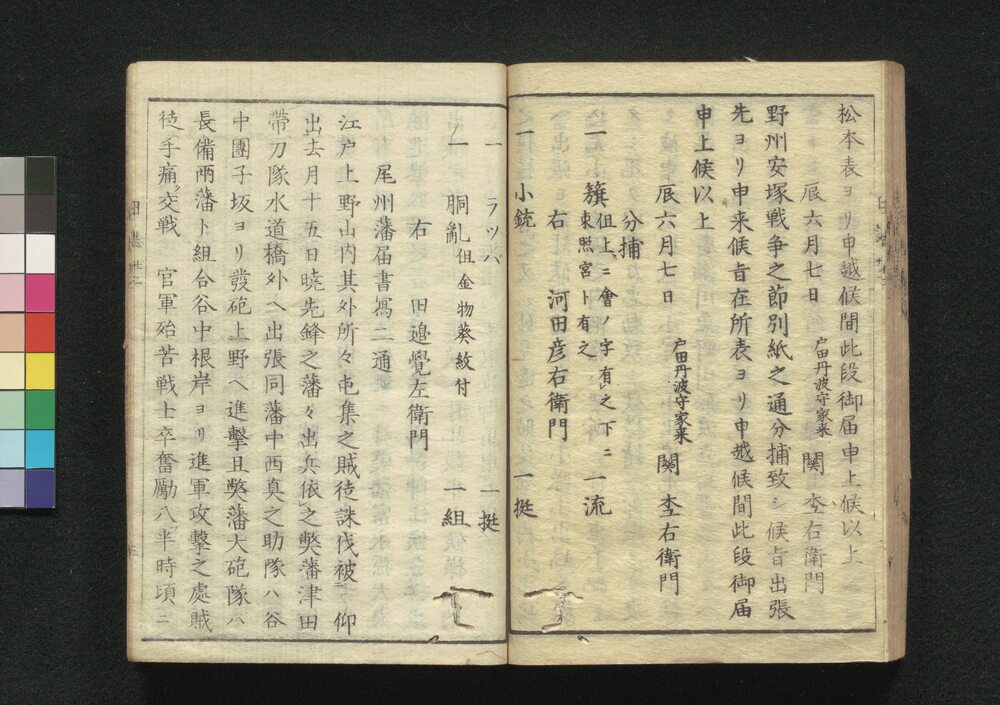 松本表ヨリ申越候間此段御届申上候以上
辰六月七日 戸田丹波守家来 関杢右衛門
野州安塚戦争之節別紙之通分捕致シ候旨出張
先ヨリ申来候旨在所表ヨリ申越候間此段御届
申上候以上
辰六月七日 戸田丹波守家来 関杢右衛門
分捕
一籏 但上ニ會ノ字有之下ニ東照宮ト有之 一流
右 河田彦右衛門
一小銃 一挺
一ラッパ 一挺
一胴亂 但金物葵紋付 一組
右 田邉覺左衛門
尾州藩届書寫二通
江戸上野山内其外所々屯集之賊徒誅伐被 仰
出去月十五日曉先鋒之藩々出兵依之弊藩津田
帶刀隊水道橋外ヘ出張同藩中西真之助隊ハ谷
中團子坂ヨリ發砲上野ヘ進撃且弊藩大砲隊ハ
長備兩藩ト組合谷中根岸ヨリ進軍攻撃之處賊
徒手痛ク交戦 官軍殆苦戦士卒奮勵八ツ半時頃ニ